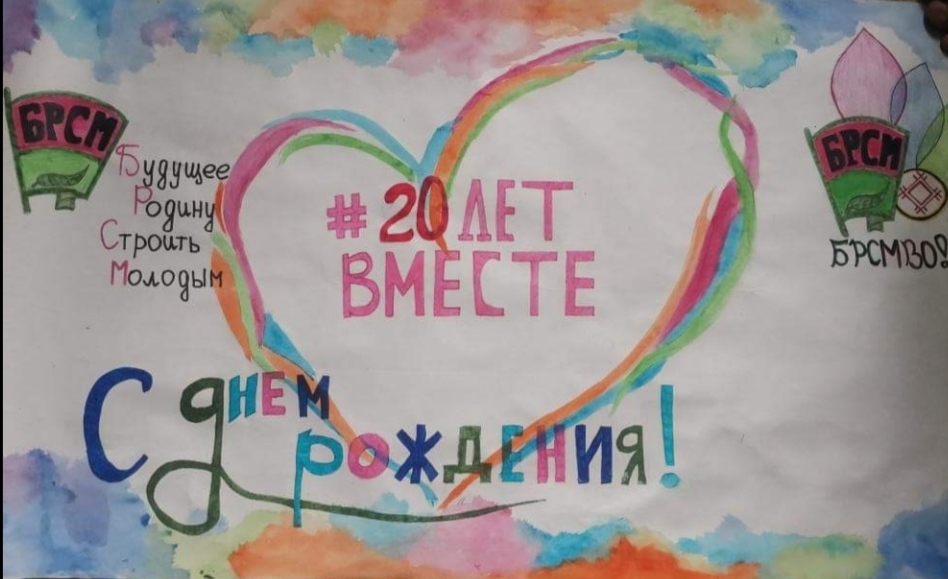 БРСМ
Будущее
Родину
Строить
Молодым
#20 ЛЕТ
ВМЕСТЕ
БРСМ
С днем
рождения!